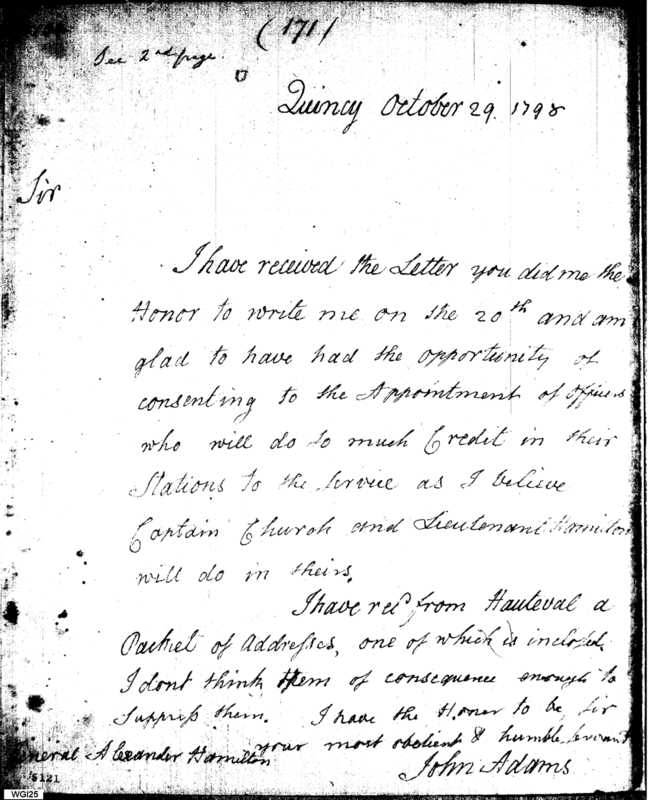 (171)
See 2nd page.
Quincy October 29. 1798
Sir
I have received the Letter you did me the
Honor to write me on the 20th and am
glad to have had the opportunity of
consenting to the Appointment of Officers
who will do so much Credit in their
Stations to the Service as I believe
Captain Church and Lieutenant Hamilton
will do in theirs.
I have recd from Hauteval a
Packet of Addresses, one of which is inclosed.
I dont think them of consequence enough to
suppress them. I have the Honor to be, Sir
your most obedient & humble Servant
General Alexander Hamilton
John Adams
5121
WGI25